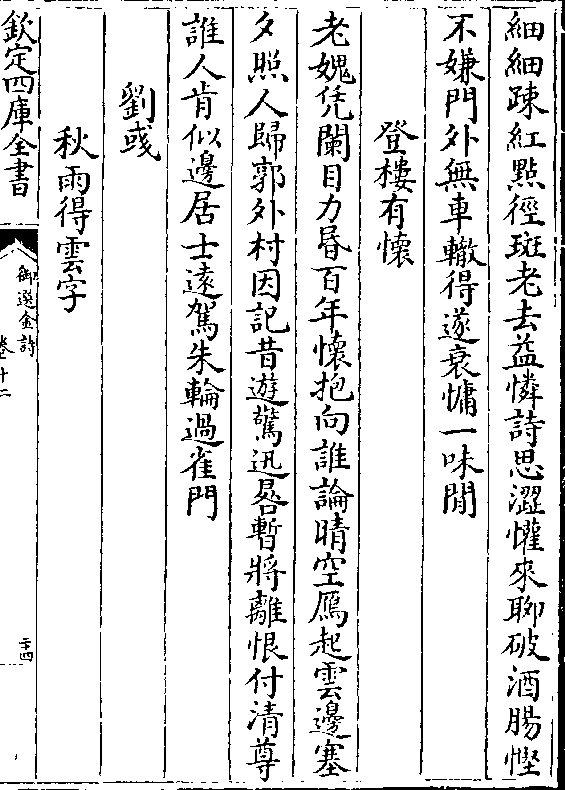 細細疎紅點徑斑老去益憐詩思澀懽來聊破酒腸慳
不嫌門外無車轍得遂衰慵一味閒
登樓有懷
老媿凭闌目力昏百年懷抱向誰論晴空鴈起雲邊塞
夕照人歸郭外村因記昔遊驚迅晷暫將離恨付清尊
誰人肯似邊居士遠駕朱輪過雀門
劉彧
秋雨得雲字
欽定四庫全書
御選金詩
卷十二
二十四